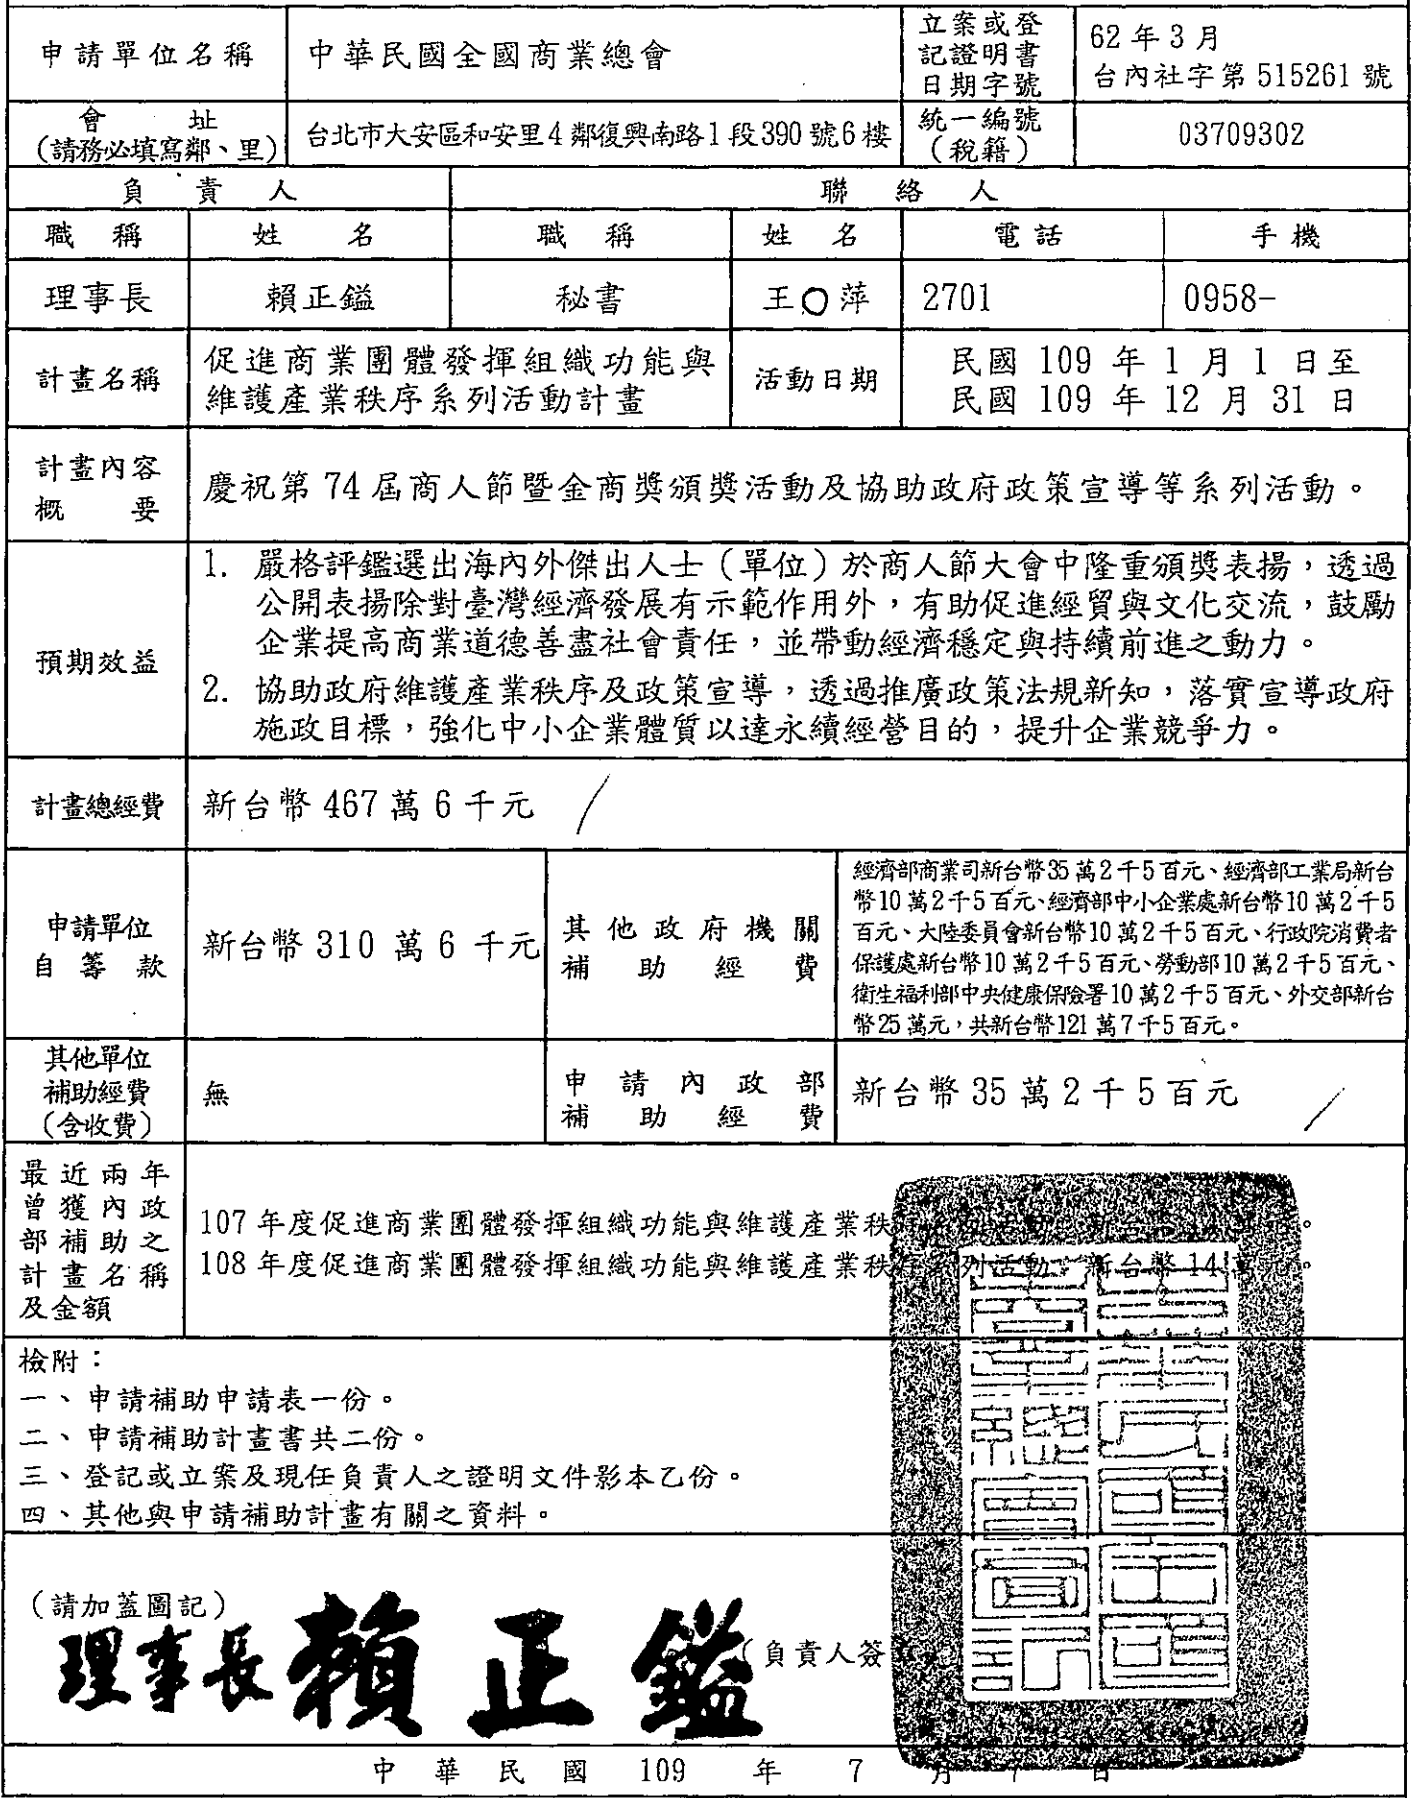 申請單位名稱
中華民國全國商業總會
立案或登
記證明書
日期字號
62年3月
台內社字第515261號
會址
(請務必填寫鄰、里)
台北市大安區和安里4鄰復興南路1段390號6樓
統一編號
(稅籍)
03709302
負責人
聯絡人
職稱
姓名
職稱
姓名
電話
手機
理事長
賴正鎰
秘書
王〇萍
2701
0958-
計畫名稱
促進商業團體發揮組織功能與
維護產業秩序系列活動計畫
活動日期
民國 109 年 1 月 1 日至
民國 109 年 12 月 31 日
計畫內容
概要
慶祝第74屆商人節暨金商獎頒獎活動及協助政府政策宣導等系列活動。
預期效益
1. 嚴格評鑑選出海內外傑出人士(單位)於商人節大會中隆重頒獎表揚,透過
公開表揚除對臺灣經濟發展有示範作用外,有助促進經貿與文化交流,鼓勵
企業提高商業道德善盡社會責任,並帶動經濟穩定與持續前進之動力。
2. 協助政府維護產業秩序及政策宣導,透過推廣政策法規新知,落實宣導政府
施政目標,強化中小企業體質以達永續經營目的,提升企業競爭力。
計畫總經費
新台幣467萬6千元
申請單位
自籌款
新台幣310萬6千元
其他政府機關
補助經費
經濟部商業司新台幣35萬2千5百元、經濟部工業局新台
幣10萬2千5百元、經濟部中小企業處新台幣10萬2千5
百元、大陸委員會新台幣10萬2千5百元、行政院消費者
保護處新台幣10萬2千5百元、勞動部10萬2千5百元、
衛生福利部中央健康保險署10萬2千5百元、外交部新台
幣25萬元,共新台幣121萬7千5百元。
其他單位
補助經費
(含收費)
無
申請內政部
補助經費
新台幣35萬2千5百元
最近兩年
曾獲內政
部補助之
計畫名稱
及金額
107年度促進商業團體發揮組織功能與維護產業秩
108年度促進商業團體發揮組織功能與維護產業秩序系列活動:新台幣14萬元。
檢附:
一、申請補助申請表一份。
二、申請補助計畫書共二份。
三、登記或立案及現任負責人之證明文件影本乙份。
四、其他與申請補助計畫有關之資料。
(請加蓋圖記)
理事長賴正鎰
(負責人簽
中華民國 109 年 7 月 7 日